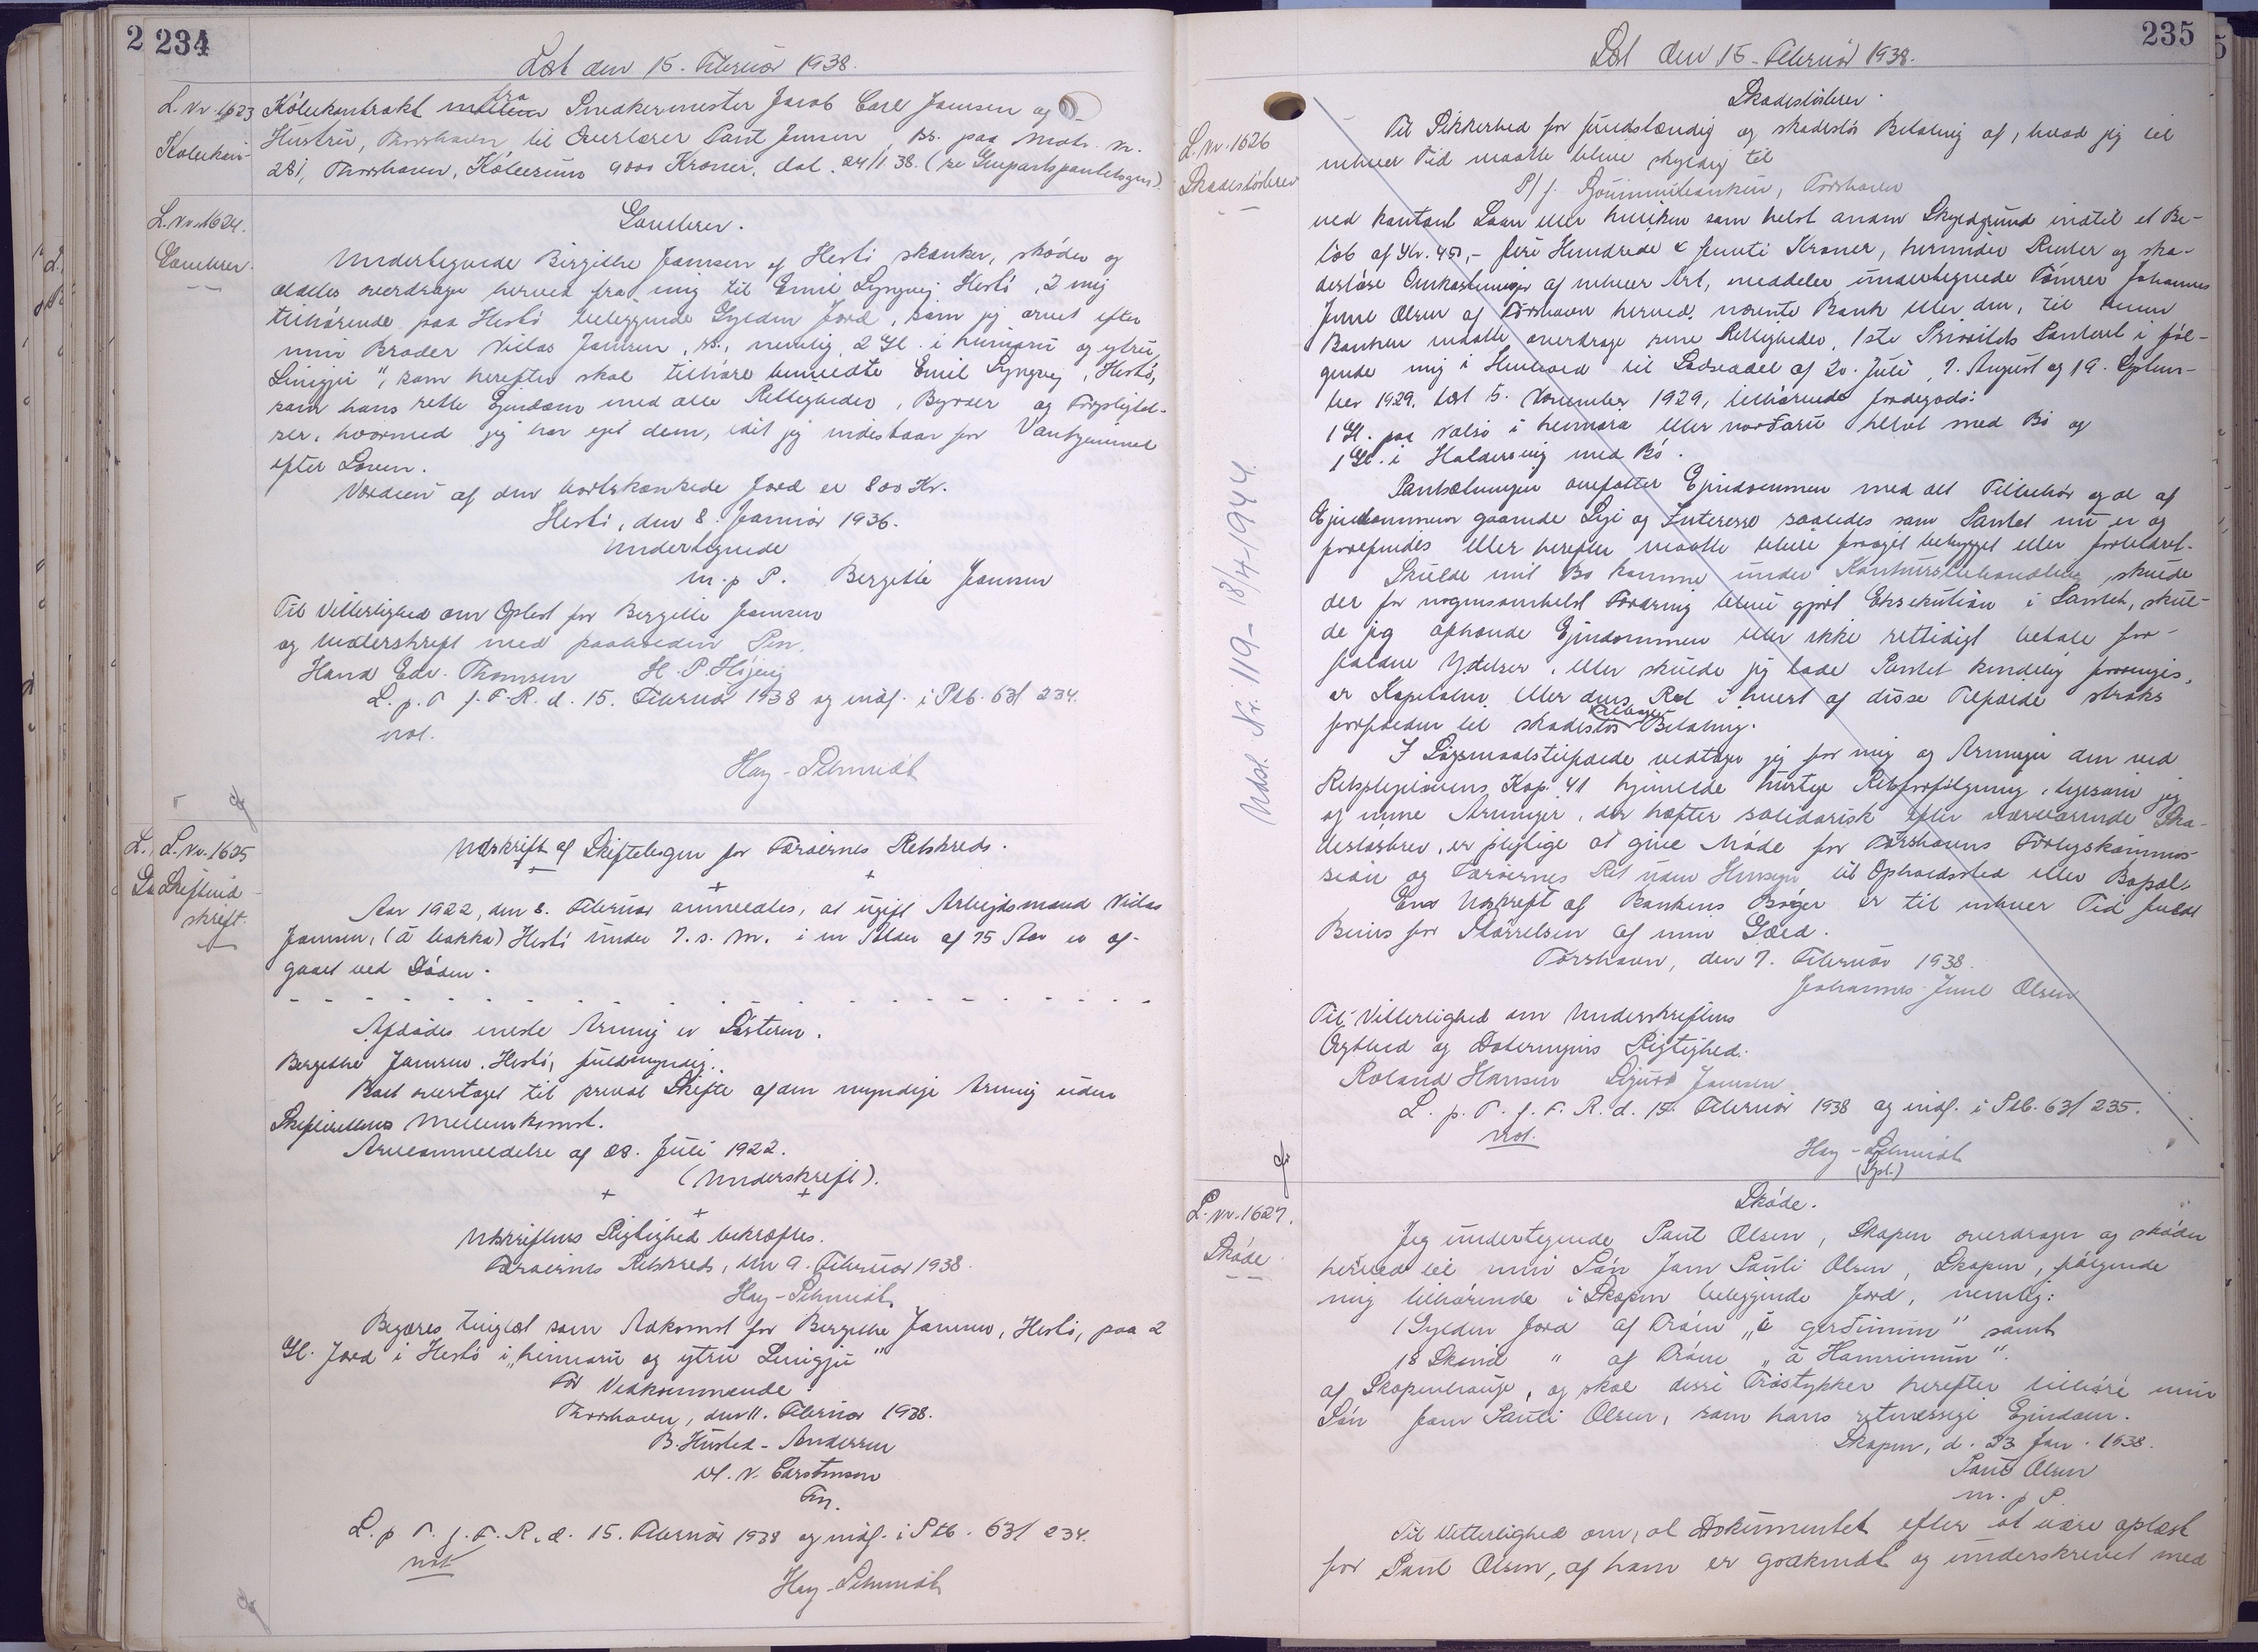 2 234
Læst den 15. Februar 1938.
L. Nr. 1623
Købekon-
Købekontrakt mellem fra Snedkermester Jacob Carl Jamsen og
Hustru, Thorshavn, til Overlærer Paul Jensen, Bs. paa Matr. nr.
281, Thorshavn, Købesum 9000 Kroner, dat. 24/1 38. (se Genpartspantebogen).
L. Nr. 1624.
Gavebrev.
Gavebrev.
Undertegnede Birgithe Jamsen af Hestø skænker, skøder og
aldeles overdrager herved fra mig til Emil Lyngvej Hestø, 2 mig
tilhørende paa Hestø beliggende Gylden Jord, som jeg arvet efter
min Broder Niclas Jamsen, s., nemlig 2 Gl. i heimaru og ytru
Linigju", som herefter skal tilhøre bemeldte Emil Lyngvej, Hestø,
som hans rette Ejendom med alle Rettigheder, Byrder og Forpligtel-
ser, hvormed jeg har ejet dem, idet jeg indestaar for Vanhjemmel
efter Loven.
Værdien af den bortskænkede Jord er 800 Kr.
Hestø, den 8. Januar 1936.
Undertegnede
m. p P. Bergitte Jamsen
Til Vitterlighed om Oplæst for Bergitte Jamsen
og Underskrift med paaholden Pen.
Hans Edv. Thomsen H. P. Højvig
L. p. T. f. F. R. d. 15. Februar 1938 og indf. i Ptb. 63/ 234.
not.
Hay-Schmidt
L. Nr. 1625
Skifteud-
skrift.
Udskrift af Skiftebogen for Færøernes Retskreds.
Aar 1922, den 8. Februar anmeldtes, at ugift Arbejdsmand Niclas
Jamsen, (á bakka) Hestø under 7. s. M. i en Alder af 75 Aar er af-
gaaet ved Døden.
- - - - - - - - - - - - - - - - - - - -
Afdødes eneste Arving er Søsteren.
Bergithe Jamsen, Hestø, fuldmyndig.
Boet overtaget til privat Skifte af den myndige Arving uden
Skifterettens Mellemkomst.
Arveanmeldelse af 28. Juli 1922.
(Underskrift).
Udskriftens Rigtighed bekræftes.
Færøernes Retskreds, den 9. Februar 1938.
Hay-Schmidt
Begæres tinglæst som Adkomst for Bergithe Jamsen, Hestø, paa 2
Gl. Jord i Hestø i „heimaru og ytru Linigju"
For Vedkommende:
Thorshavn, den 11. Februar 1938.
B. Husted-Andersen
v/. N. Carstensen
Fm.
L. p T. f. F. R. d. 15. Februar 1938 og indf. i Ptb. 63/ 234.
not
Hay-Schmidt
235
Læst den 15. Februar 1938.
L. Nr. 1626
Skadesløsbrev
Udsl. Nr. 119 - 18/4-1944.
Skadesløsbrev.
Til Sikkerhed for fuldstændig og skadesløs Betaling af, hvad jeg til
enhver Tid maatte blive skyldig til
P/f. Føroyabankin, Tórshavn
ved kontant Laan eller hvilken som helst anden Skyldgrund indtil et Be-
løb af Kr. 450,- fire Hundrede & femti Kroner, herunder Renter og ska-
desløse Omkostninger af enhver Art, meddeler undertegnede Tømrer Johannes
Juul Olsen af Tórshavn herved nævnte Bank eller den, til hvem
Banken maatte overdrage sine Rettigheder, 1ste Prioritets Panteret i føl-
gende mig i Henhold til Lodseddel af 20. Juli, 7. August og 19. Septem-
ber 1929, læst 5. November 1929, tilhørende Jordegods:
1 Gl. paa Nolsø i heimara eller norðaru helvt með Bø og
1 Gl. i Haldersvig med Bø.
Pantsætningen omfatter Ejendommen med alt Tilbehør og al af
Ejendommen gaaende Leje og Interesse saaledes som Pantet nu er og
forefindes eller herefter maatte blive forøget bebygget eller forbedret.
Skulde mit Bo komme under Konkursbehandling skulde
der for nogensomhelst Fordring blive gjort Eksekution i Pantet, skul-
de jeg afhænde Ejendommen eller ikke rettidigt betale for-
faldne Ydelser, eller skulde jeg lade Pantet kendelig forringes,
er Kapitalen eller dens Rest i hvert af disse Tilfælde straks
forfalden til skadesløs Betaling.
I Søgsmaalstilfælde vedtager jeg for mig og Arvinger den ved
Retsplejelovens Kap. 41 hjemlede hurtige Retsforfølgning, ligesom jeg
og mine Arvinger, der hæfter solidarisk efter nærværende Ska-
desløsbrev, er pligtige at give Møde for Tórshavns Forligskommis-
sion og Færøernes Ret uden Hensyn til Opholdssted eller Bopæl.
En Udskrift af Bankens Bøger er til enhver Tid fuldt
Bevis for Størrelsen af min Gæld.
Tórshavn, den 7. Februar 1938.
Johannes Juul Olsen
Til Vitterlighed om Underskriftens
Ægthed og Dateringens Rigtighed.
Roland Hansen Sjúrð Jamsen
L. p. T. f. F. R. d. 15. Februar 1938 og indf. i Ptb. 63/ 235.
not.
Hay-Schmidt
L. Nr. 1627.
Skøde
Skøde.
Jeg undertegnede Paul Olsen, Skopun overdrager og skøder
herved til min Søn Jam Pauli Olsen, Skopun, følgende
mig tilhørende i Skopun beliggende Jord, nemlig:
1 Gylden Jord af Trøen „á gerðinum" samt
18 Skind " af Trøen „á Hamrinum".
af Skopunhauge, og skal disse Trøstykker herefter tilhøre min
Søn Jam Pauli Olsen, som hans retmæssige Ejendom.
Skopun, d. 23 Jan. 1938.
Paul Olsen
m. p P.
Til Vitterlighed om, at Dokumentet efter at være oplæst
for Paul Olsen, af ham er godkendt og underskrevet med